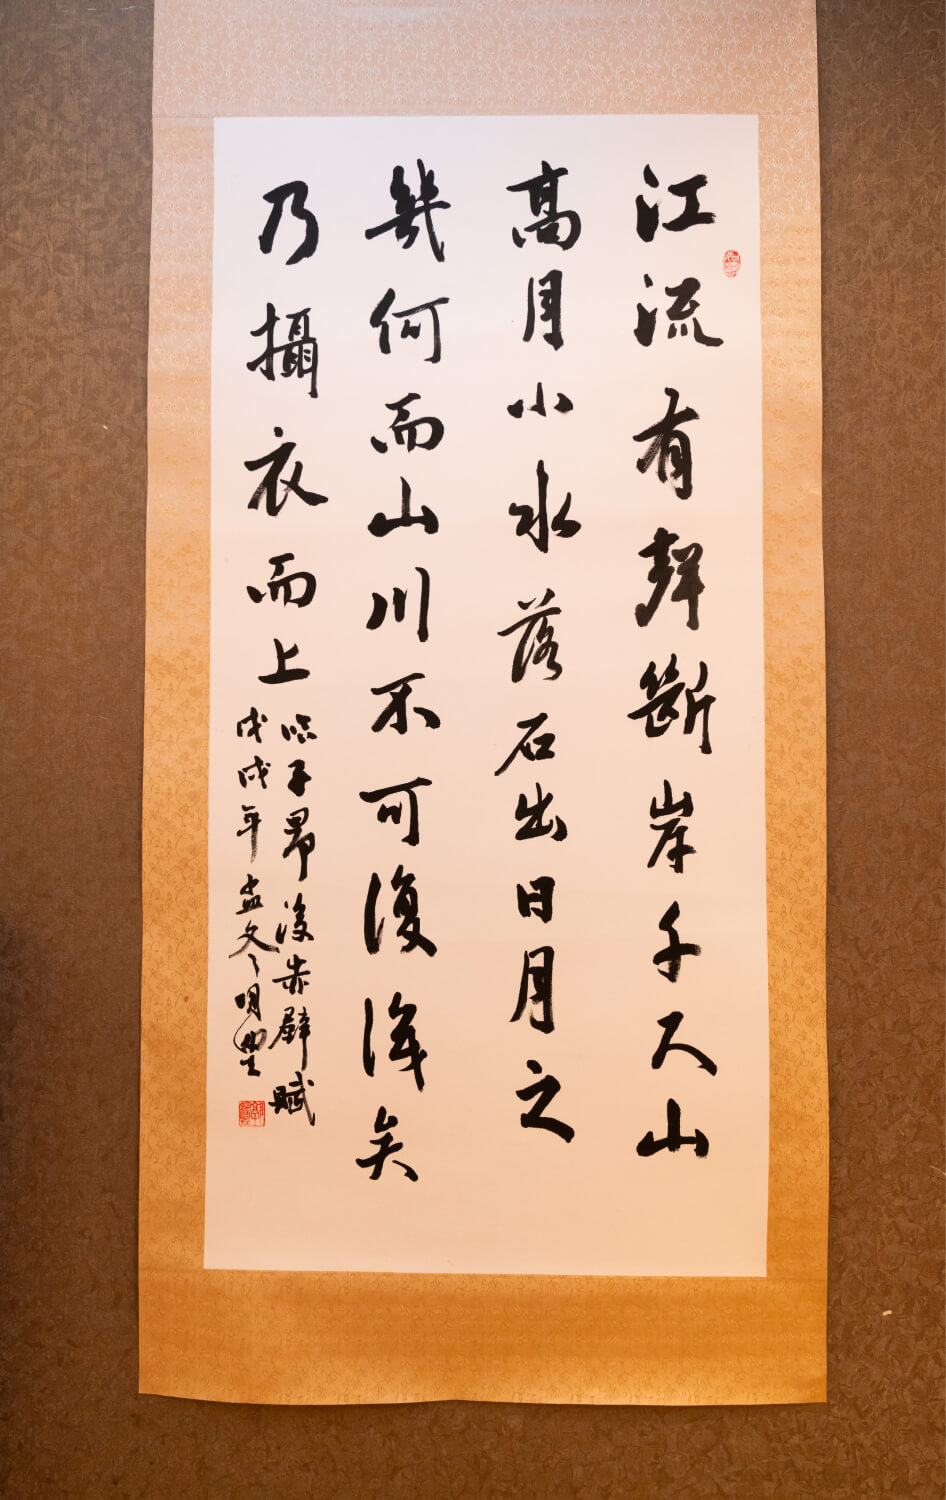 江流有聲斷岸千尺山
高月小水落石出日月之
幾何而山川不可復識矣
乃攝衣而上
臨子昂後赤壁賦
戊戌年孟冬